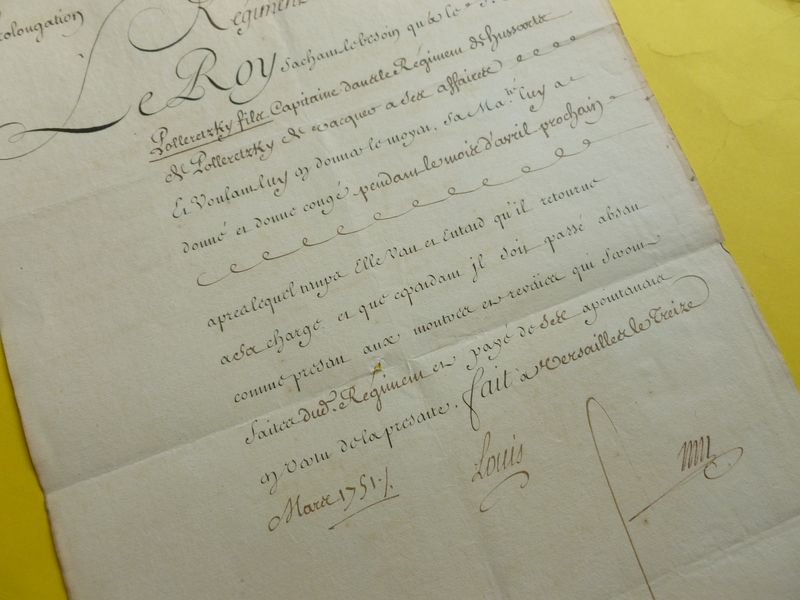 Prolongation
Régiment
Le Roy sachant le besoin qu'a le S.
Polleretzky fils Capitaine dans le Régiment de hussards
de Polleretzky de vacquer a ses affaires
Et Voulant luy en donner le moyen, sa Ma.té luy a
donné et donne congé pendant le mois d'avril prochain
apres lequel temps Elle Veut et Entend qu'il retourne
a sa charge, et que cependant il soit passé absent
comme present aux montres et reveües qui seront
faites dud. Régiment et payé de ses apointemens
en Vertu de la presente. fait a Versailles le Treize
Mars 1751./.
Louis